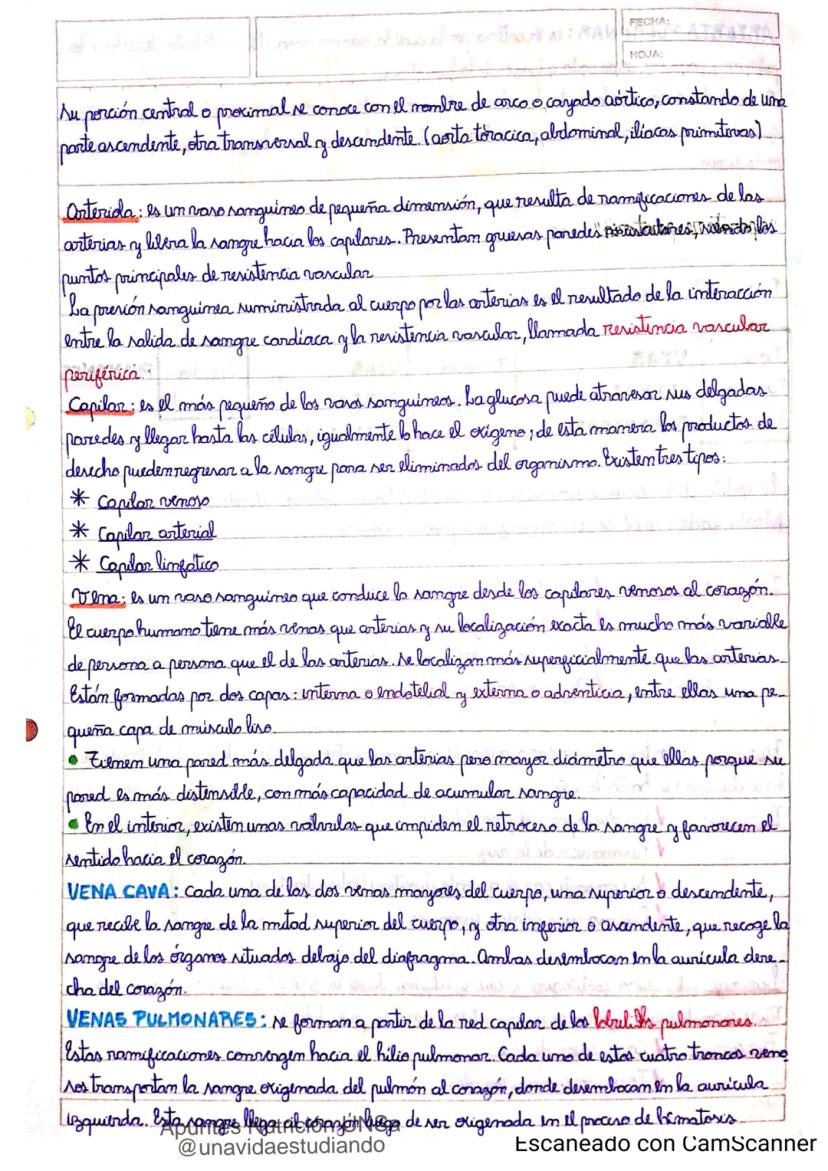 FECHA:
HOJA:
su porción central o proximal se conoce con el nombre de arco o cayado aórtico, constando de una
parte ascendente, otra transversal y descendente. (aorta tóracica, abdominal, ilíacas primitivas)
Arteriola: es un vaso sanguíneo de pequeña dimensión, que resulta de ramificaciones de las
arterias y libera la sangre hacia los capilares. Presentam gruesas paredes siendo los
puntos principales de resistencia vascular
La presión sanguínea suministrada al cuerpo por las arterias es el resultado de la interacción
entre la salida de sangre cardíaca y la resistencia vascular, llamada resistencia vascular
periférica.
Capilar: es el más pequeño de los vasos sanguíneos. La glucosa puede atravesar sus delgadas
paredes y llegar hasta las células, igualmente lo hace el oxígeno; de esta manera los productos de
desecho pueden regresar a la sangre para ser eliminados del organismo. Existen tres tipos:
* Capilar venoso
* Capilar arterial
* Capilar linfático
Vena: es un vaso sanguíneo que conduce la sangre desde los capilares venosos al corazón.
El cuerpo humano tiene más venas que arterias y su localización exacta es mucho más variable
de persona a persona que el de las arterias. se localizan más superficialmente que las arterias
Están formadas por dos capas: interna o endotelial y externa o adventicia, entre ellas una pe-
queña capa de músculo liso.
• Tienen una pared más delgada que las arterias pero mayor diámetro que ellas porque su
pared es más distensible, con más capacidad de acumular sangre.
• En el interior, existen unas válvulas que impiden el retroceso de la sangre y favorecen el
sentido hacia el corazón.
VENA CAVA: Cada una de las dos venas mayores del cuerpo, una superior o descendente,
que recibe la sangre de la mitad superior del cuerpo, y otra inferior o ascendente, que recoge la
sangre de los órganos situados debajo del diafragma. Ambas desembocan en la aurícula dere-
cha del corazón.
VENAS PULMONARES: se forman a partir de la red capilar de los lobulillos pulmonares.
Estas ramificaciones convergen hacia el hilio pulmonar. Cada uno de estos cuatro troncos veno
sos transportan la sangre oxigenada del pulmón al corazón, donde desembocan en la aurícula
izquierda. Esta sangre llega al corazón luego de ser oxigenada en el proceso de hematosis
Apuntes Nutrición
@unavidaestudiando
Escaneado con CamScanner